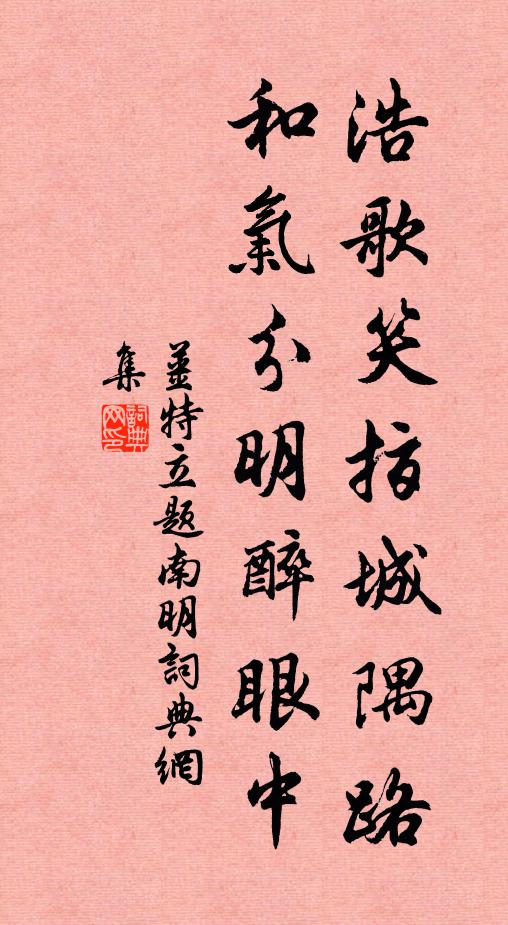 浩歌笑指城隅路
和氣分明醉眼中
姜特立題南明詞典網
集
詞典網印